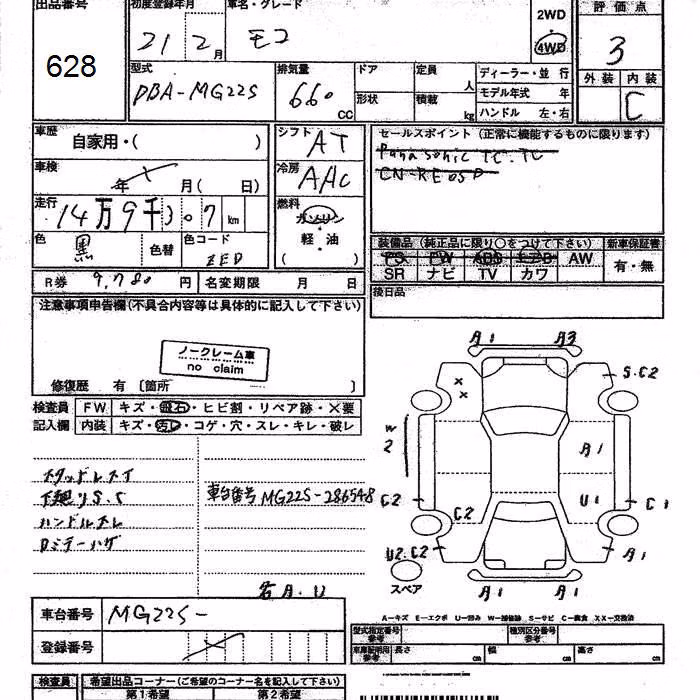 出品番号
628
初度登録年月
21 2月
車名・グレード
モコ
2WD
4WD
評価点
3
外装 内装
C
型式
DBA-MG22S
排気量
660 CC
ドア
形状
定員 人
積載 kg
ディーラー・並行
モデル年式 年
ハンドル 左・右
車歴
自家用・( )
車検
年 月( 日)
走行
14万9千3.07km
色
黒
色替
色コード
ZED
シフト
AT
冷房
AAC
燃料
ガソリン
軽・油
( )
セールスポイント(正常に機能するものに限ります)
Panasonic TC.TC
CN-RE05D
装備品(純正品に限り○をつけて下さい)
新車保証書
PS PW ABS エアB AW
SR ナビ TV カワ
有・無
R券 9,780 円
名変期限 月 日
後日品
注意事項申告欄(不具合内容等は具体的に記入して下さい)
ノークレーム車
no claim
修復歴 有 〔箇所 〕
検査員
記入欄
FW キズ・飛石・ヒビ割・リペア跡・×要
内装 キズ・汚レ・コゲ・穴・スレ・キレ・破レ
スタッドレスタイ
下廻りS.C
ハンドルスレ
Dミラーハゲ
車台番号 MG22S-286548
各A.U
A1 A3
S.C2
W2
A1
U1
C2
C2
C1
U2.C2
A1
A1 A1
スペア
A-キズ E-エクボ U-凹み W-補修跡 S-サビ C-腐食 XX-交換済
車台番号
MG22S-
登録番号
型式指定番号
参考
種別区分番号
参考
車庫証明用
参考
長さ cm
幅 cm
高さ cm
検査員
希望出品コーナー(ご希望のコーナー名を記入して下さい)
第1希望 第2希望